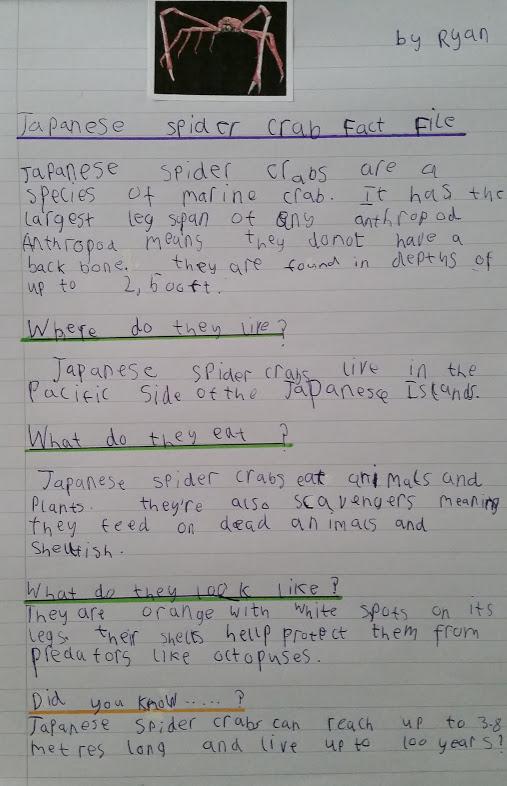 by Ryan
Japanese spider crab Fact File
Japanese spider crabs are a
species of marine crab. It has the
largest leg span of any anthropod
Anthropod means they donot have a
back bone. they are found in depths of
up to 2,600ft.
Where do they live?
Japanese spider crabs live in the
Pacific side of the Japanese Islands.
What do they eat ?
Japanese spider crabs eat animals and
Plants. they're also scavengers meaning
they feed on dead animals and
shellfish.
What do they look like ?
They are orange with white spots on its
legs. their shells hellp protect them from
predators like octopuses.
Did you know..... ?
Japanese spider crabs can reach up to 3.8
metres long and live up to 100 years!